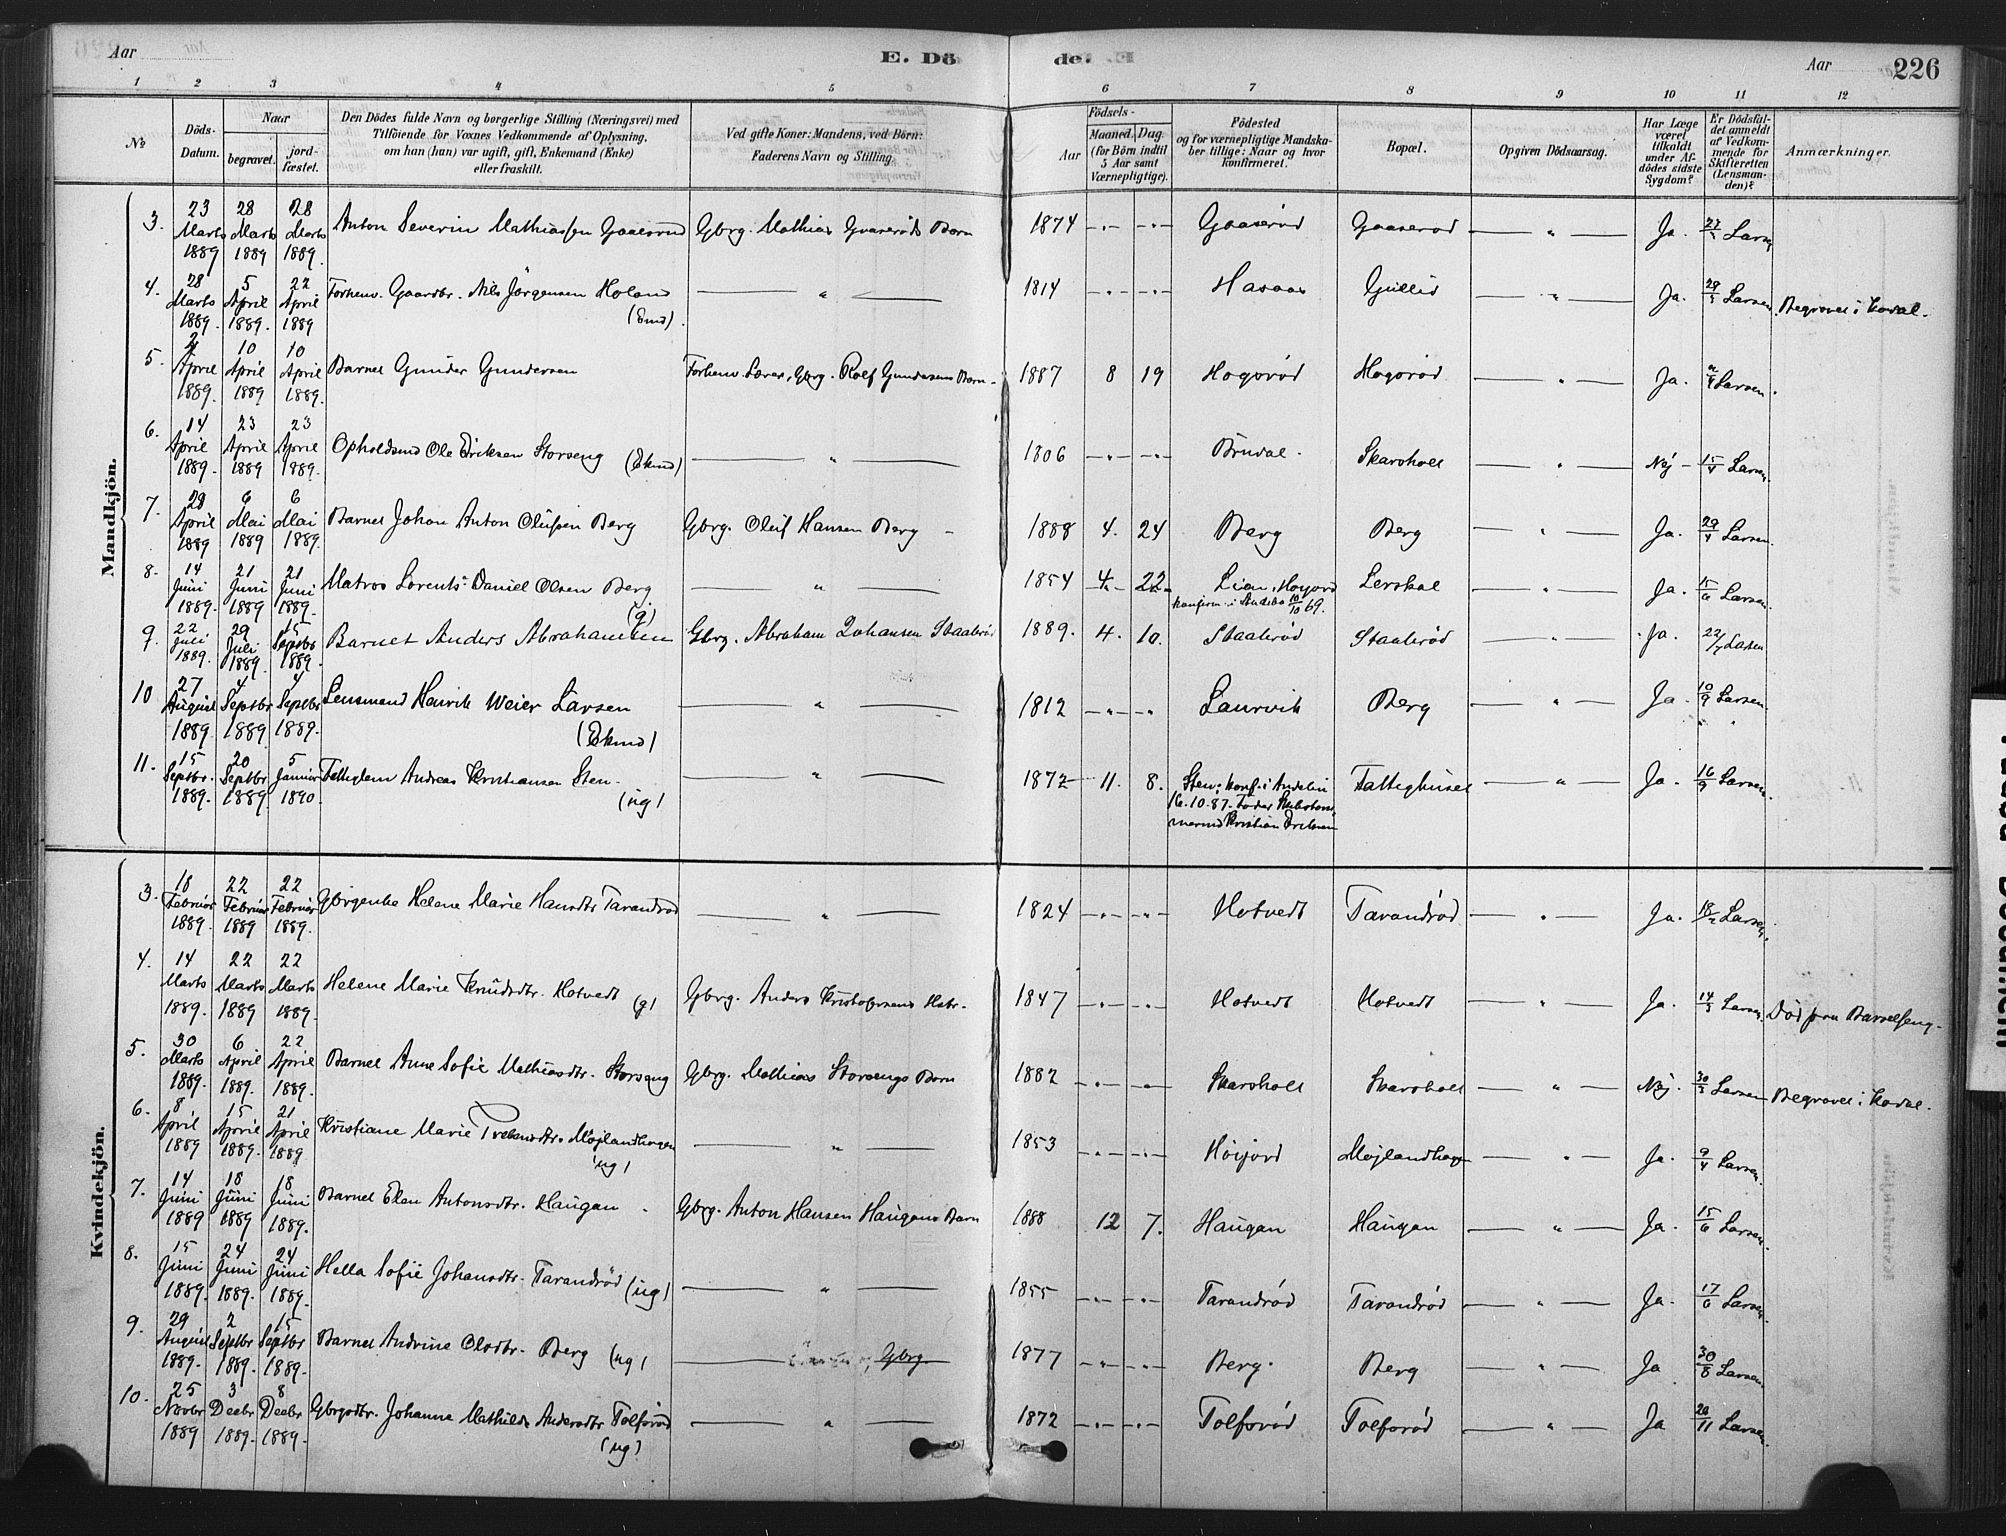 Aar
E. Dö
de.
Aar
226
1 2 3 4 5 6 7 8 9 10 11 12
No
Döds-
Datum.
Naar
begravet.
jord-
fæstet.
Den Dödes fulde Navn og borgerlige Stilling (Næringsvei) med
Tilföiende for Voxnes Vedkommende af Oplysning,
om han (hun) var ugift, gift, Enkemand (Enke)
eller fraskilt.
Ved gifte Koner: Mandens, ved Börn:
Faderens Navn og Stilling.
Födsels-
Aar
Maaned. Dag.
(for Börn indtil
5 Aar samt
Værnepligtige).
Födested
og for værnepligtige Mandska-
ber tillige: Naar og hvor
konfirmeret.
Bopæl.
Opgiven Dödsaarsag.
Har Læge
været
tilkaldt
under Af-
dödes sidste
Sygdom?
Er Dödsfal-
det anmeldt
af Vedkom-
mende for
Skifteretten
(Lensman-
den)?
Anmærkninger.
Mandkjön.
3. 23 Marts 1889 28 Marts 1889 28 Marts 1889. Anton Severin Mathiassen Gaaserud Gbrg. Mathias Gaaserøds Barn 1874 Gaaserød Gaaserød " Ja. Larsen
4. 28 Marts 1889. 5 April 1889. 22 April 1889 Forhenv. Gaardbr. Nils Jörgensen Holand (Emd). " 1814 Hasaas Gullid " Ja. 29/3 Larsen Begravet i Kodal.
5. 2 April 1889. 10 April 1889 10 April 1889. Barnet Gunder Gundersen Forhenv. Lærer, Gbrg. Rolf Gundersens Barn 1887 8 19 Hogorød Hogorød " Ja. Larsen.
6. 14 April 1889. 23 April 1889 23 April 1889. Opholdsmd Ole Eriksen Storseng (Ekmd) " 1806 Skarsholt " Nej 15/4 Larsen.
7. 29 April 1889 6 Mai 1889 6 Mai 1889. Barnet Johan Anton Olufsen Berg Gbrg. Oluf Hansen Berg 1888 4. 24 Berg Berg " Ja. 29/4 Larsen.
8. 14 Juni 1889. 21 Juni 1889 21 Juni 1889. Matros Lorents Daniel Olsen Berg (g) " 1854 4 22 Lian, Høyord konfirm. i Andebo 10/10 69. Lerskal " Ja. 15/6 Larsen.
9. 22 Juli 1889. 29 Juli 1889. 15 Septbr 1889. Barnet Anders Abrahamsen Gbrg. Abraham Johansen Staalerød 1889. 4. 10. Staalerød Staalerød " Ja. 22/7 Larsen
10 27 August 1889. 4 Septbr 1889 4 Septbr 1889. Lensmand Henrik Weier Larsen (Ekmd) " 1812 Laurvik Berg " Ja. 10/9 Larsen.
11. 15 Septbr. 1889. 20 Septbr 1889 5 Januar 1890. Fattiglem Andreas Kristiansen Sten. (ug) " 1872 11. 8. Sten; konf. i Andebu 16.10.87. Fader Kristian Eriksen Fattighuset " Ja. 16/9 Larsen.
Kvindekjön.
3. 18 Februar 1889. 22 Februar 1889 22 Februar 1889. Gbrgenke Helene Marie Hansdtr Tarandrød " 1824 Hotvedt Tarandrød " Ja. 18/2 Larsen.
4. 14 Marts 1889. 22 Marts 1889 22 Marts 1889. Helene Marie Knudsdtr. Hotvedt (g) Gbrg. Anders Kristofersens Hstr. 1847 Hotvedt Hotvedt " Ja. 14/3 Larsen. Død paa Barselseng.
5. 30 Marts 1889. 6 April 1889. 22 April 1889. Barnet Anne Sofie Mathiasdtr. Storseng Gbrg. Mathias Storsengs Barn 1882 Skarsholt Skarsholt " Nej. 30/3 Larsen Begravet i Kodal.
6. 8 April 1889 15 April 1889. 21 April 1889. Kristiane Marie Prebensdtr. Møjlandhagen (ug) " 1853 Höijord Møjlandhagen " Ja. 9/4 Larsen.
7. 14 Juni 1889 18 Juni 1889 18 Juni 1889. Barnet Ellen Antonsdtr. Haugan Gbrg. Anton Hansen Haugans Barn 1888 12 7. Haugan Haugan " Ja. 15/6 Larsen.
8. 15 Juni 1889. 24 Juni 1889. 24 Juni 1889. Hella Sofie Johansdtr. Tarandrød (ug) " 1855 Tarandrød Tarandrød " Ja. 17/6 Larsen.
9. 29 August 1889. 2 Septbr 1889. 15 Septbr 1889. Barnet Andrine Olsdtr. Berg (ug) Gbrg. 1877 Berg. Berg " Ja 30/8 Larsen.
10. 25 Novbr 1889 3 Decbr 1889. 8 Decbr 1889. Gbrgsdtr. Johanne Mathilde Andersdtr Tolfsrød (ug) " 1872 Tolfsrød Tolfsrød " Ja 26/11 Larsen.